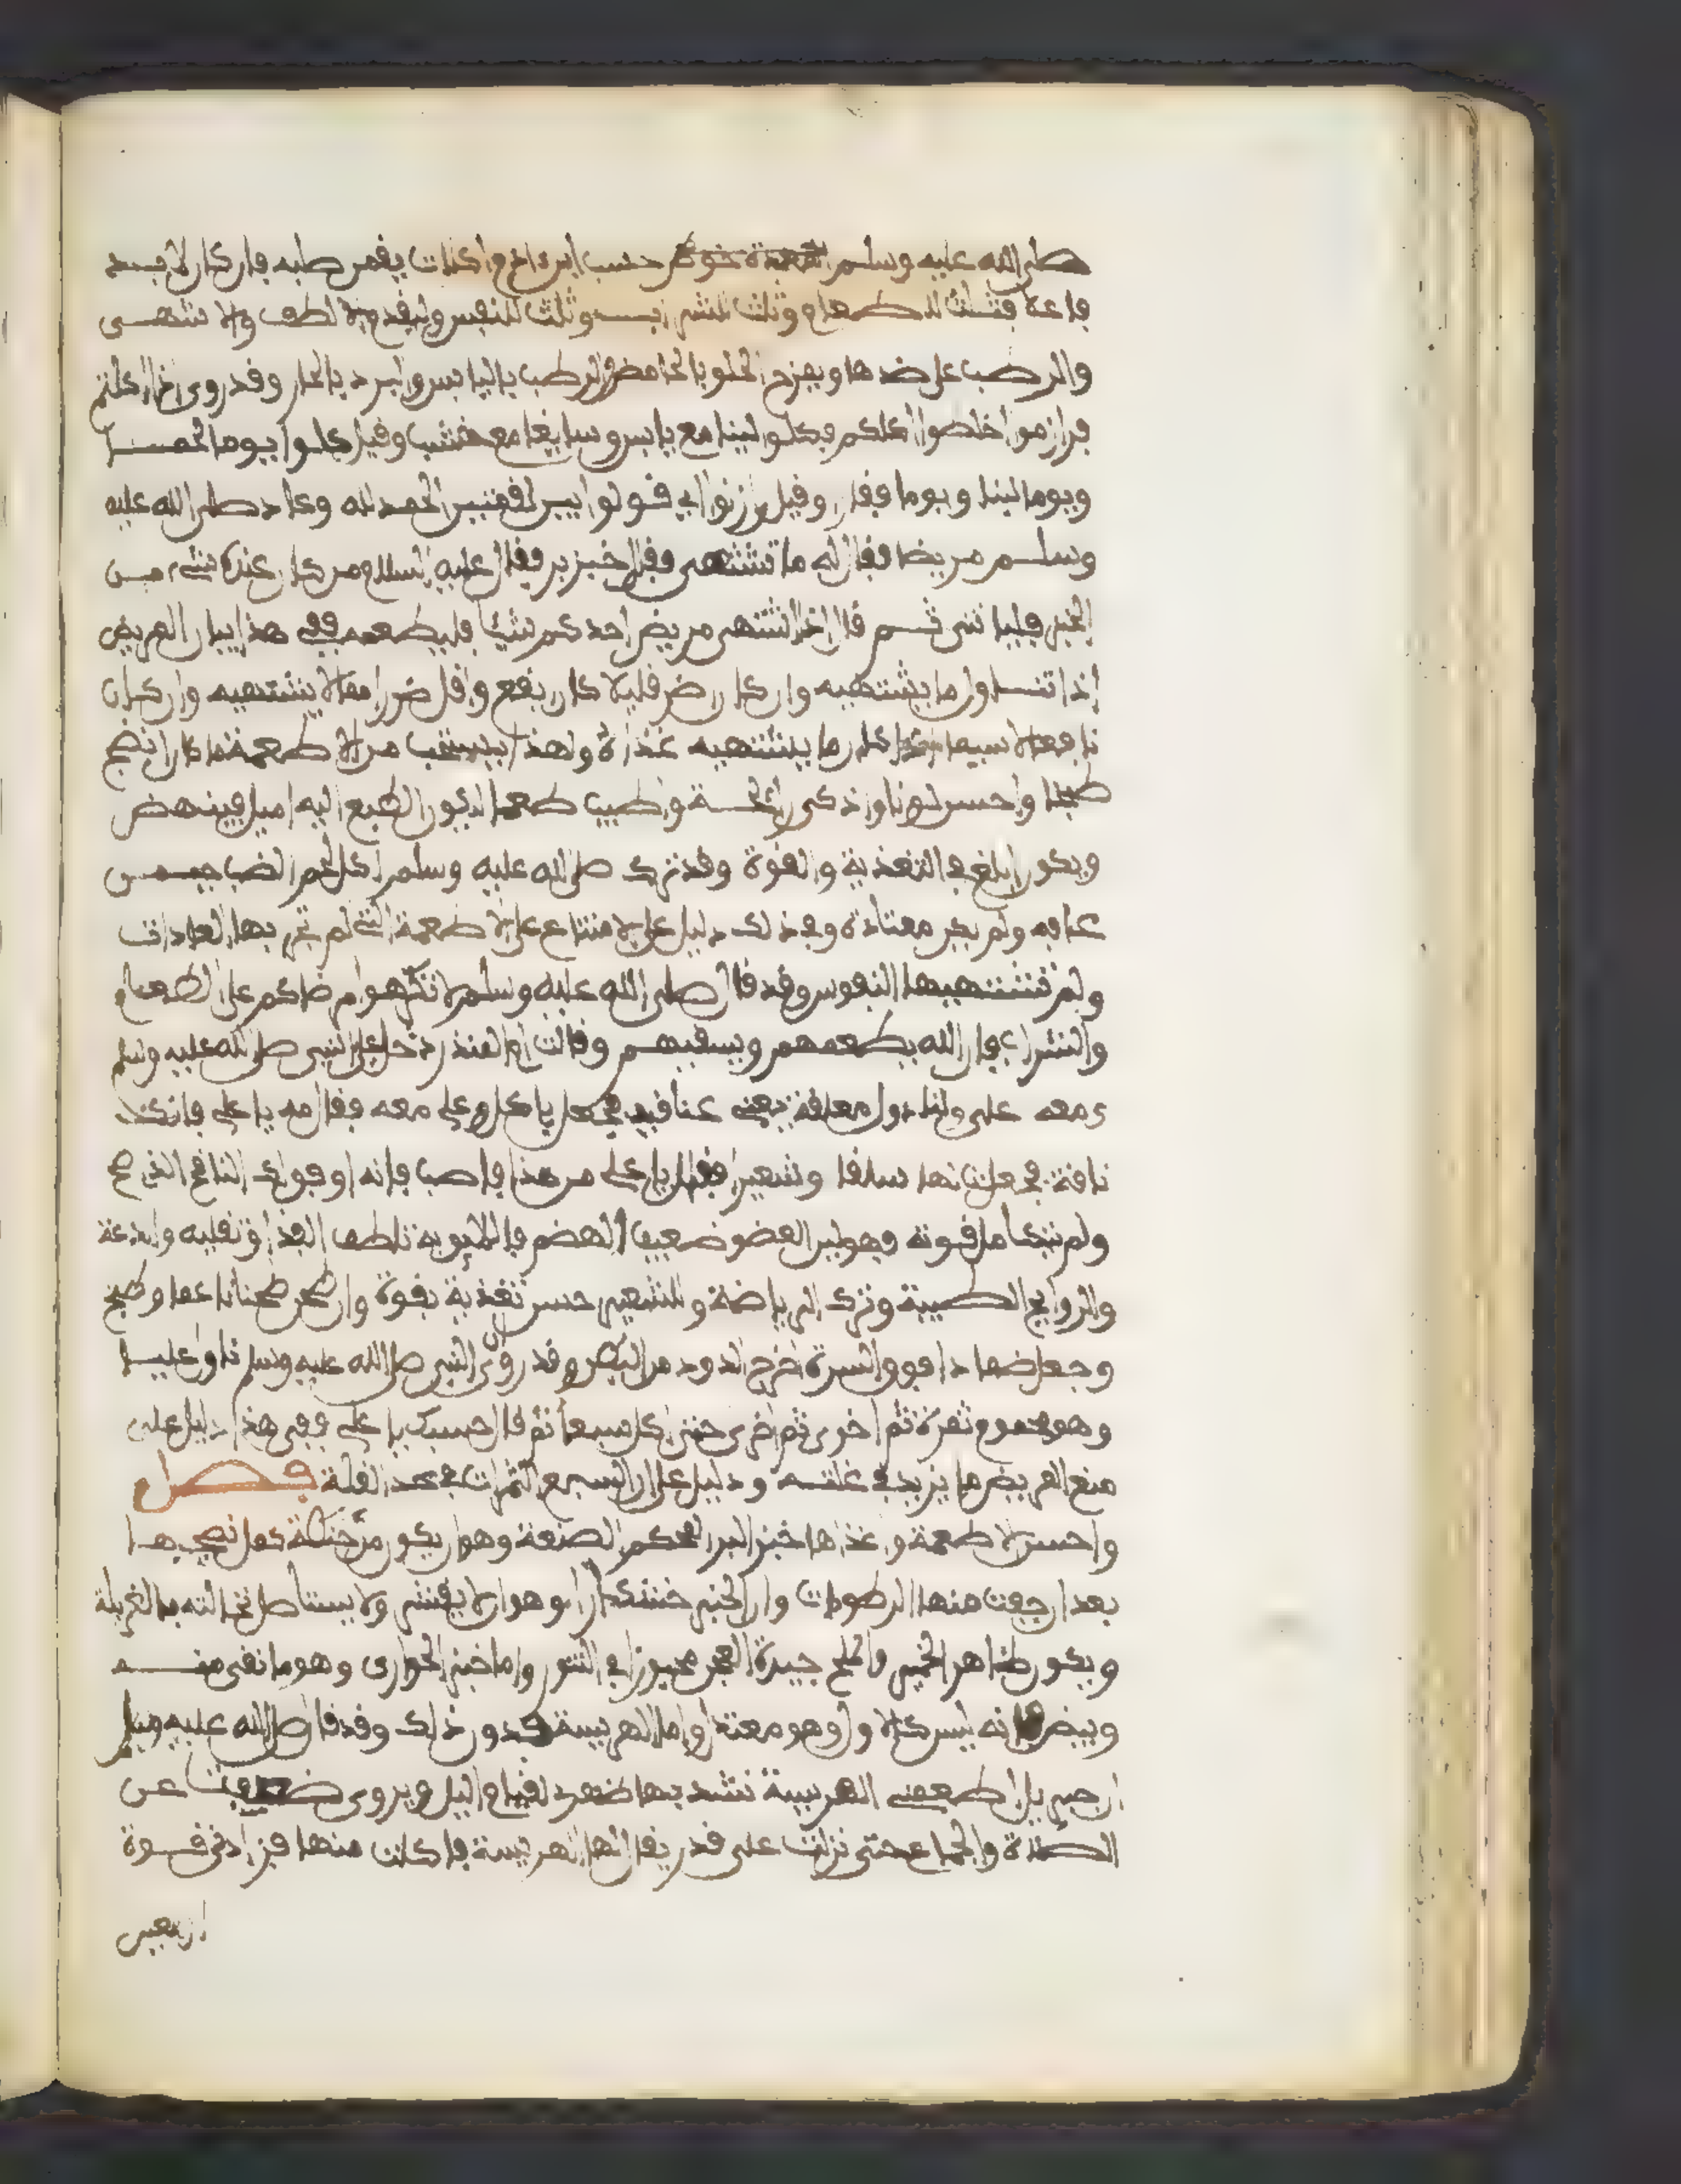 صلى الله عليه وسلم حسب ابن ءادم اكلات يقمن صلبه فان كان لا بد
فاعلا فثلث للطعام وثلث للشراب وثلث للنفس وليقدم الالطف والاشهى
والرطب على ضدها ويمزج الحلو بالحامض والرطب باليابس والبرد بالحار وقد روى اذا اكلتم
فرازموا اخلطوا اكلكم فكلوا لينا مع يابس وسايغا مع خشب وقيل كلوا يوما لحما
ويوما لبنا ويوما قفارا وقيل رازنوا اي قولوا بين لقمتين الحمد لله وعاد صلى الله عليه
وسلم مريضا فقال له ما تشتهي فقال خبز بر فقال عليه السلام من كان عنده شيء من
الخبز فلياتنى ثم قال اذا اشتهى مريض احدكم شيئا فليطعمه ففي هذا بيان المريض
اذا تناول ما يشتهيه وان كان يضر قليلا كان انفع واقل ضررا مما لا يشتهيه وان كان
نافعا لاسيما ان كان ما يشتهيه غذاء ولهذا يستحب من الاطعمة ما كان انضج
طبخا واحسن لونا واذكى رائحة واطيب طعما لتكون الطبع اليه اميل فينهضم
ويكون ابلغ في التغذية والقوة وقد ترك صلى الله عليه وسلم اكل لحم الضب حين
عافه ولم يكن معتاده وفي ذلك دليل على الامتناع على الاطعمة التي لم تجر بها العادات
ولم تشتهيها النفوس وقد قال صلى الله عليه وسلم لا تكرهوا مرضاكم على الطعام
والشراب فان الله يطعمهم ويسقيهم وقالت ام المنذر دخل علي النبي صلى الله عليه وسلم
ومعه علي ولنا دوال معلقة يعني عناقيد فجعل ياكل وعلي معه فقال مه يا علي فانك
ناقه فجعلت لها سلقا وشعيرا فقال يا علي من هذا فاصب فانه اوفق لك الناقه الذي صح
ولم تتكامل قوته فهو لين العضو ضعيف الهضم فاللايق به تلطف الغذا وتقليله والدعة
والروايح الطيبة وترك الرياضة وللشعير حسن تغذية بقوة وان طحن طحنا ناعما وطبخ
وجعل ضمادا فوق السرة اخرج الدود من البطن وقد روي ان النبي صلى الله عليه وسلم ناول عليا
وهو محموم ثمرة ثم اخرى ثم اخرى حتى اكل سبعا ثم قال حسبك يا علي ففي هذا دليل على
منع المريض ما يزيد في علته ودليل على ان السبع الثمرات في حد القلة فصل
واحسن الاطعمة واغذاها خبز البر المحكم الصنعة وهو ان يكون من حنطة كمل نضجها
بعد ان جفت منها الرطوبات وان الخبز خشكارا وهو ان لا يقشر ولا يستاصل نخالته بالغربلة
ويكون ظاهر الخمير والملح جيدة العجن مخبوزا في التنور واما خبز الحوارى وهو ما نقي منه
وبيض فانه ليس كالاول وهو معتدل واما الهريسة فدون ذلك وقد قال صلى الله عليه وسلم
ان جبريل اطعمني الهريسة نشد بها ظهري لقيام الليل ويروى ضعفت عن
الصلاة والجماع حتى نزلت على قدر يقال لها الهريسة فاكلت منها فزادني قوة
اربعين